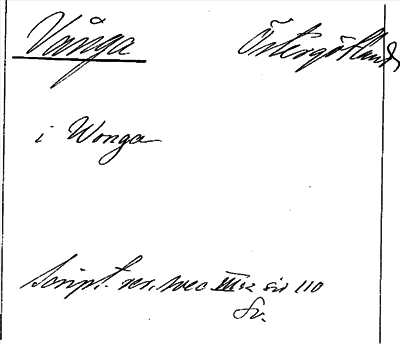 Vånga Östergötland
i Wonga
Script. rer. svec III:2 sid 110
Sv.